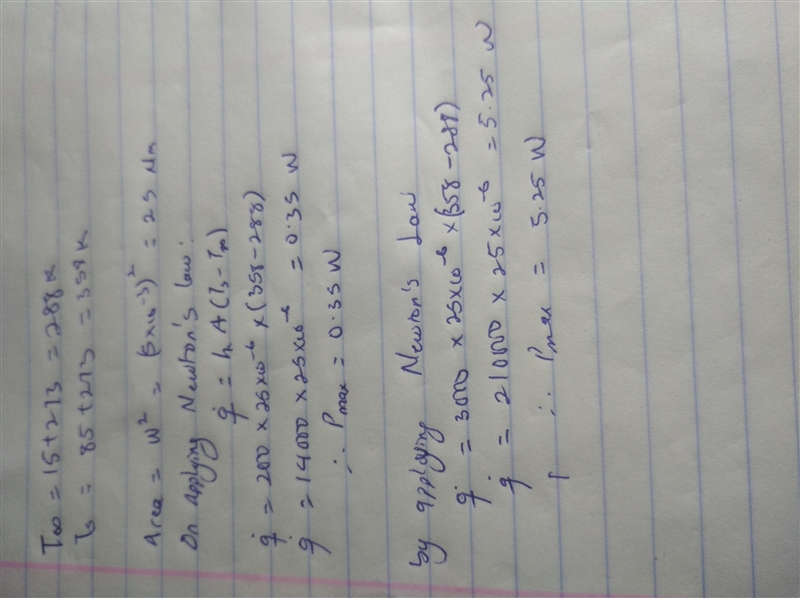 T∞ = 15+273 = 288 K
Ts = 85+273 = 358 K
Area = W² = (5×10⁻³)² = 25 Nm
On applying Newton's law:
q̇ = h A (Ts-T∞)
q̇ = 200 × 25×10⁻⁶ × (358-288)
q̇ = 14000 × 25×10⁻⁶ = 0.35 W
∴ Pmax = 0.35 W
by applying Newton's Law
q̇ = 3000 × 25×10⁻⁶ × (358-288)
q̇ = 210000 × 25×10⁻⁶ = 5.25 W
∴ Pmax = 5.25 W